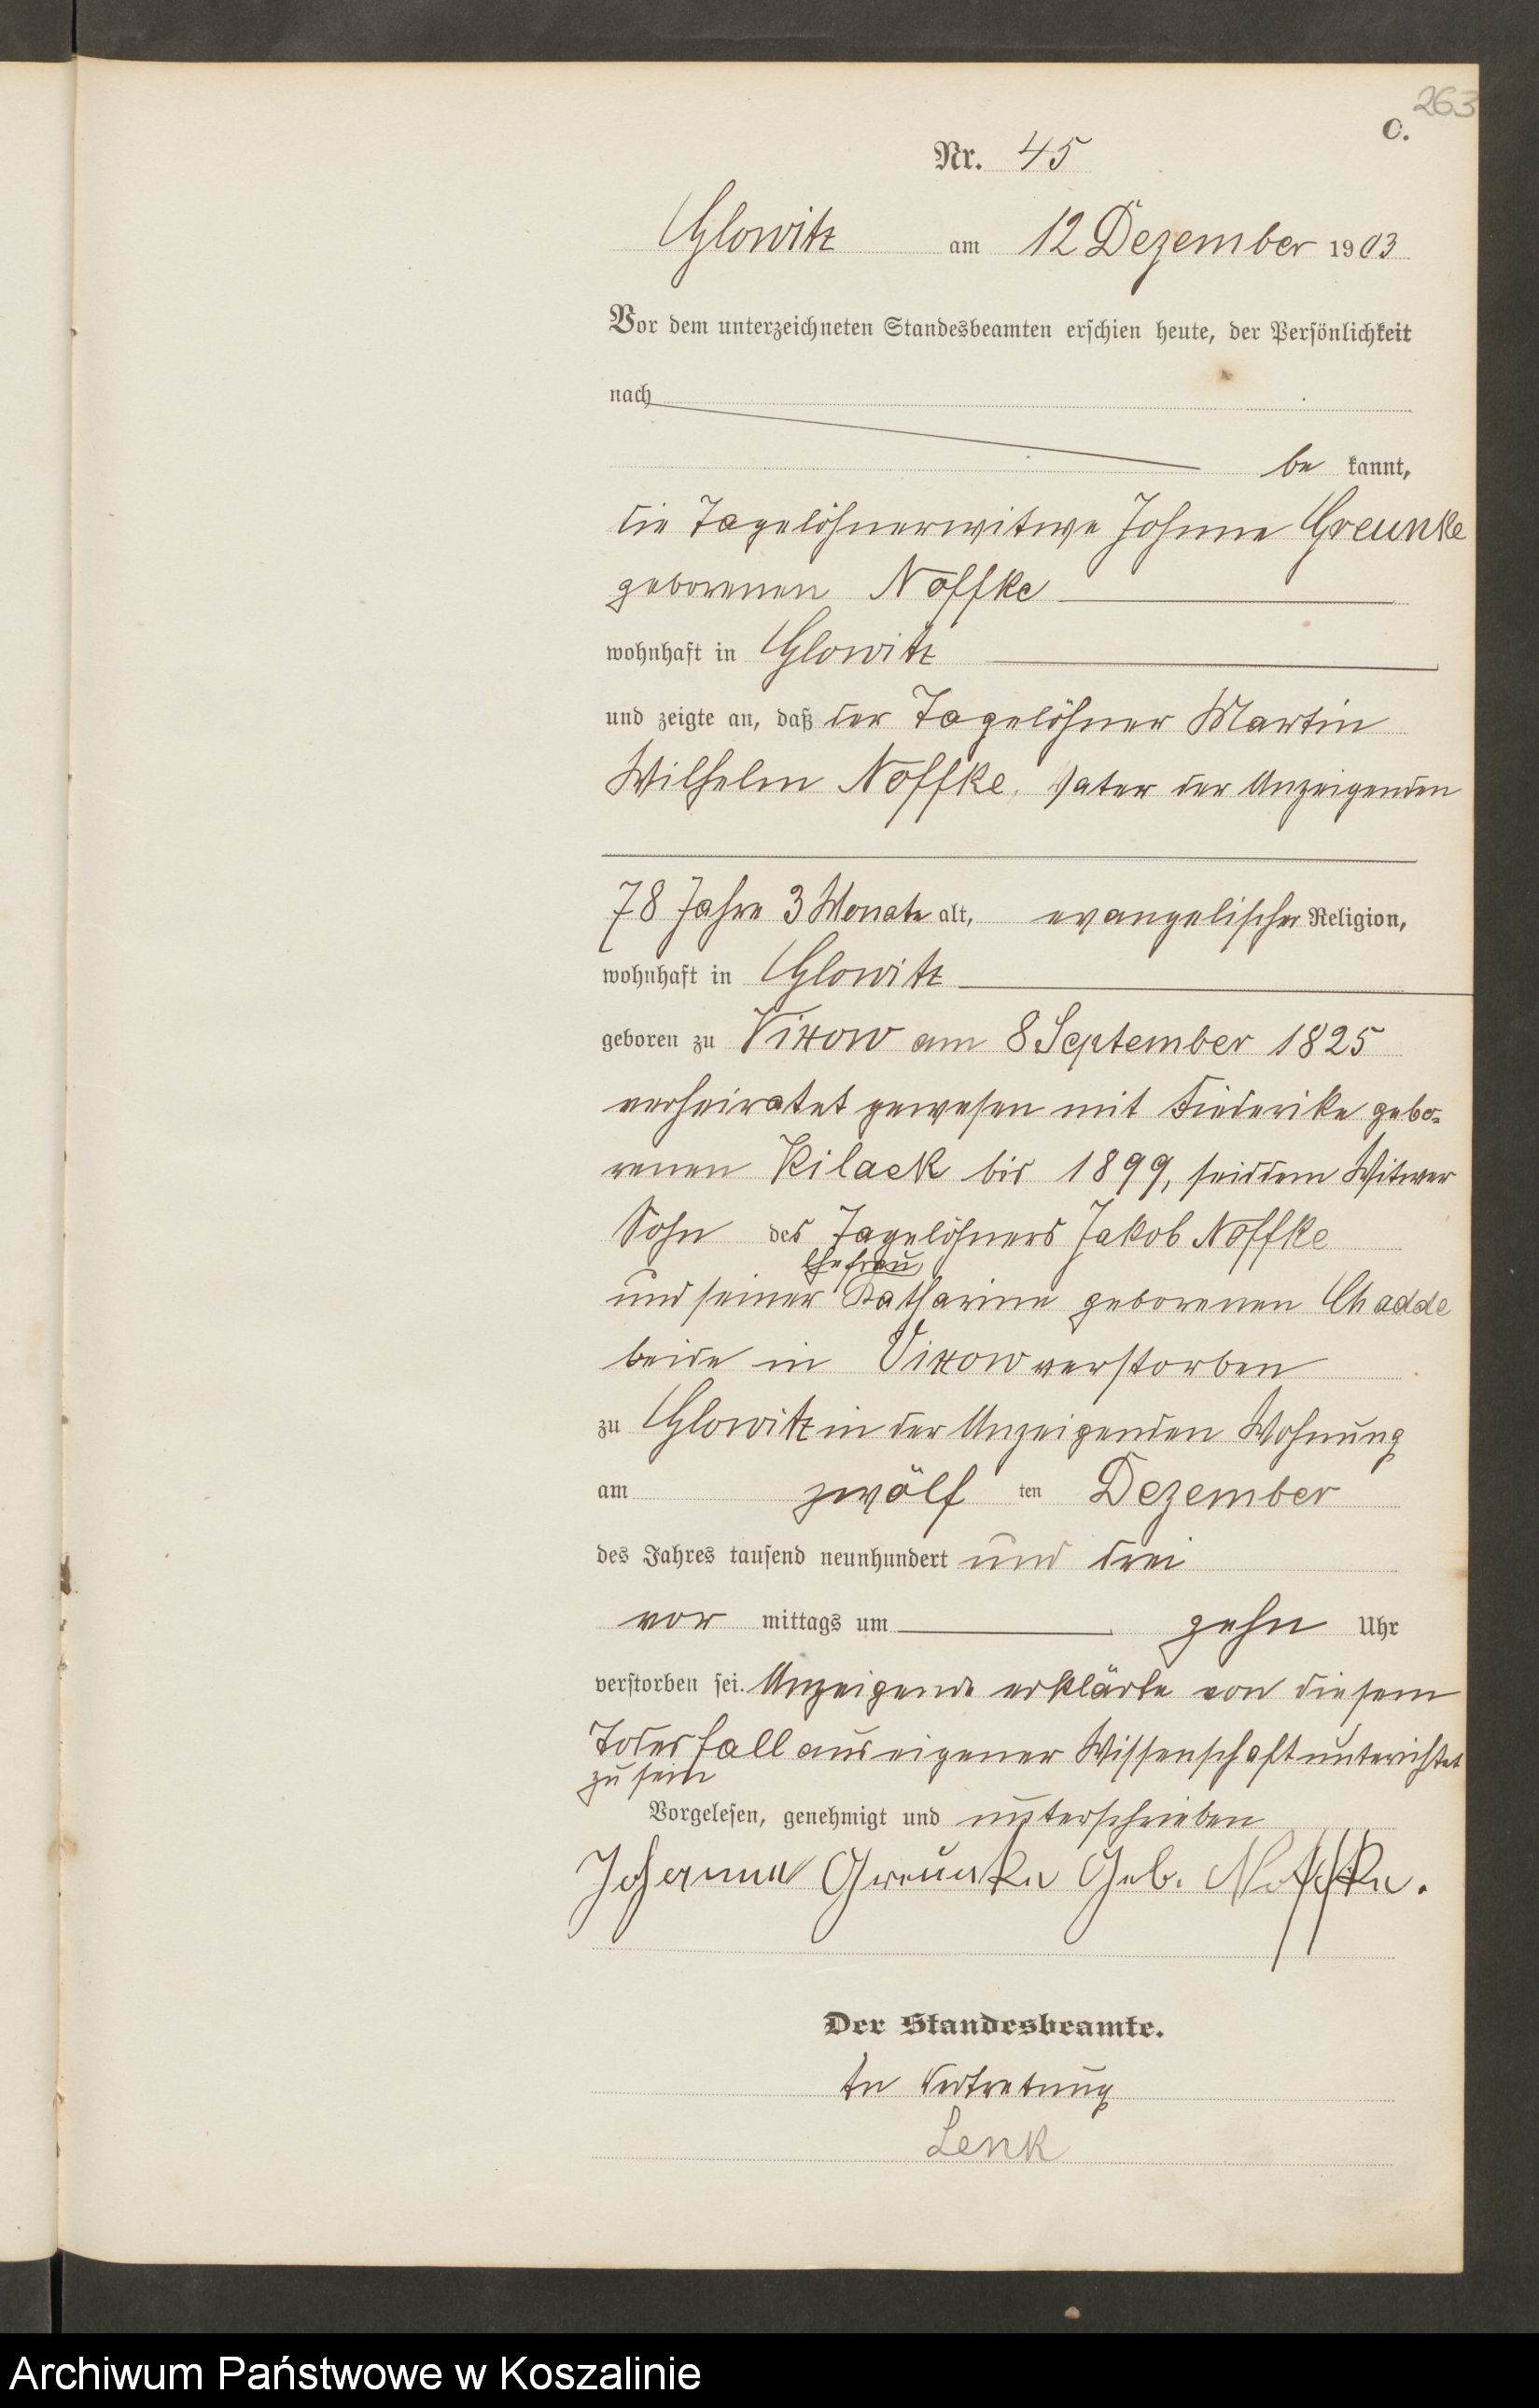 263
C.
Nr. 45
Glowitz am 12 Dezember 1903
Vor dem unterzeichneten Standesbeamten erschien heute, der Persönlichkeit
nach
be kannt,
die Tagelöhnerwitwe Johanne Greunke
geborenen Noffke
wohnhaft in Glowitz
und zeigte an, daß der Tagelöhner Martin
Wilhelm Noffke, Vater der Anzeigenden
78 Jahre 3 Monate alt, evangelischer Religion,
wohnhaft in Glowitz
geboren zu Vixow am 8 September 1825
verheiratet gewesen mit Friederike gebo-
renen Kilack bis 1899, seitdem Witwer
Sohn des Tagelöhners Jakob Noffke
Ehefrau
und seiner Katharine geborenen Chadde
beide in Vixow verstorben
zu Glowitz in der Anzeigenden Wohnung
am zwölf ten Dezember
des Jahres tausend neunhundert und drei
vor mittags um zehn Uhr
verstorben sei. Anzeigende erklärte von diesem
Todesfall aus eigener Wissenschaft unterichtet
zu sein
Vorgelesen, genehmigt und unterschrieben
Johanna Greunke Geb. Noffke.
Der Standesbeamte.
In Vertretung
Lenk
Archiwum Państwowe w Koszalinie